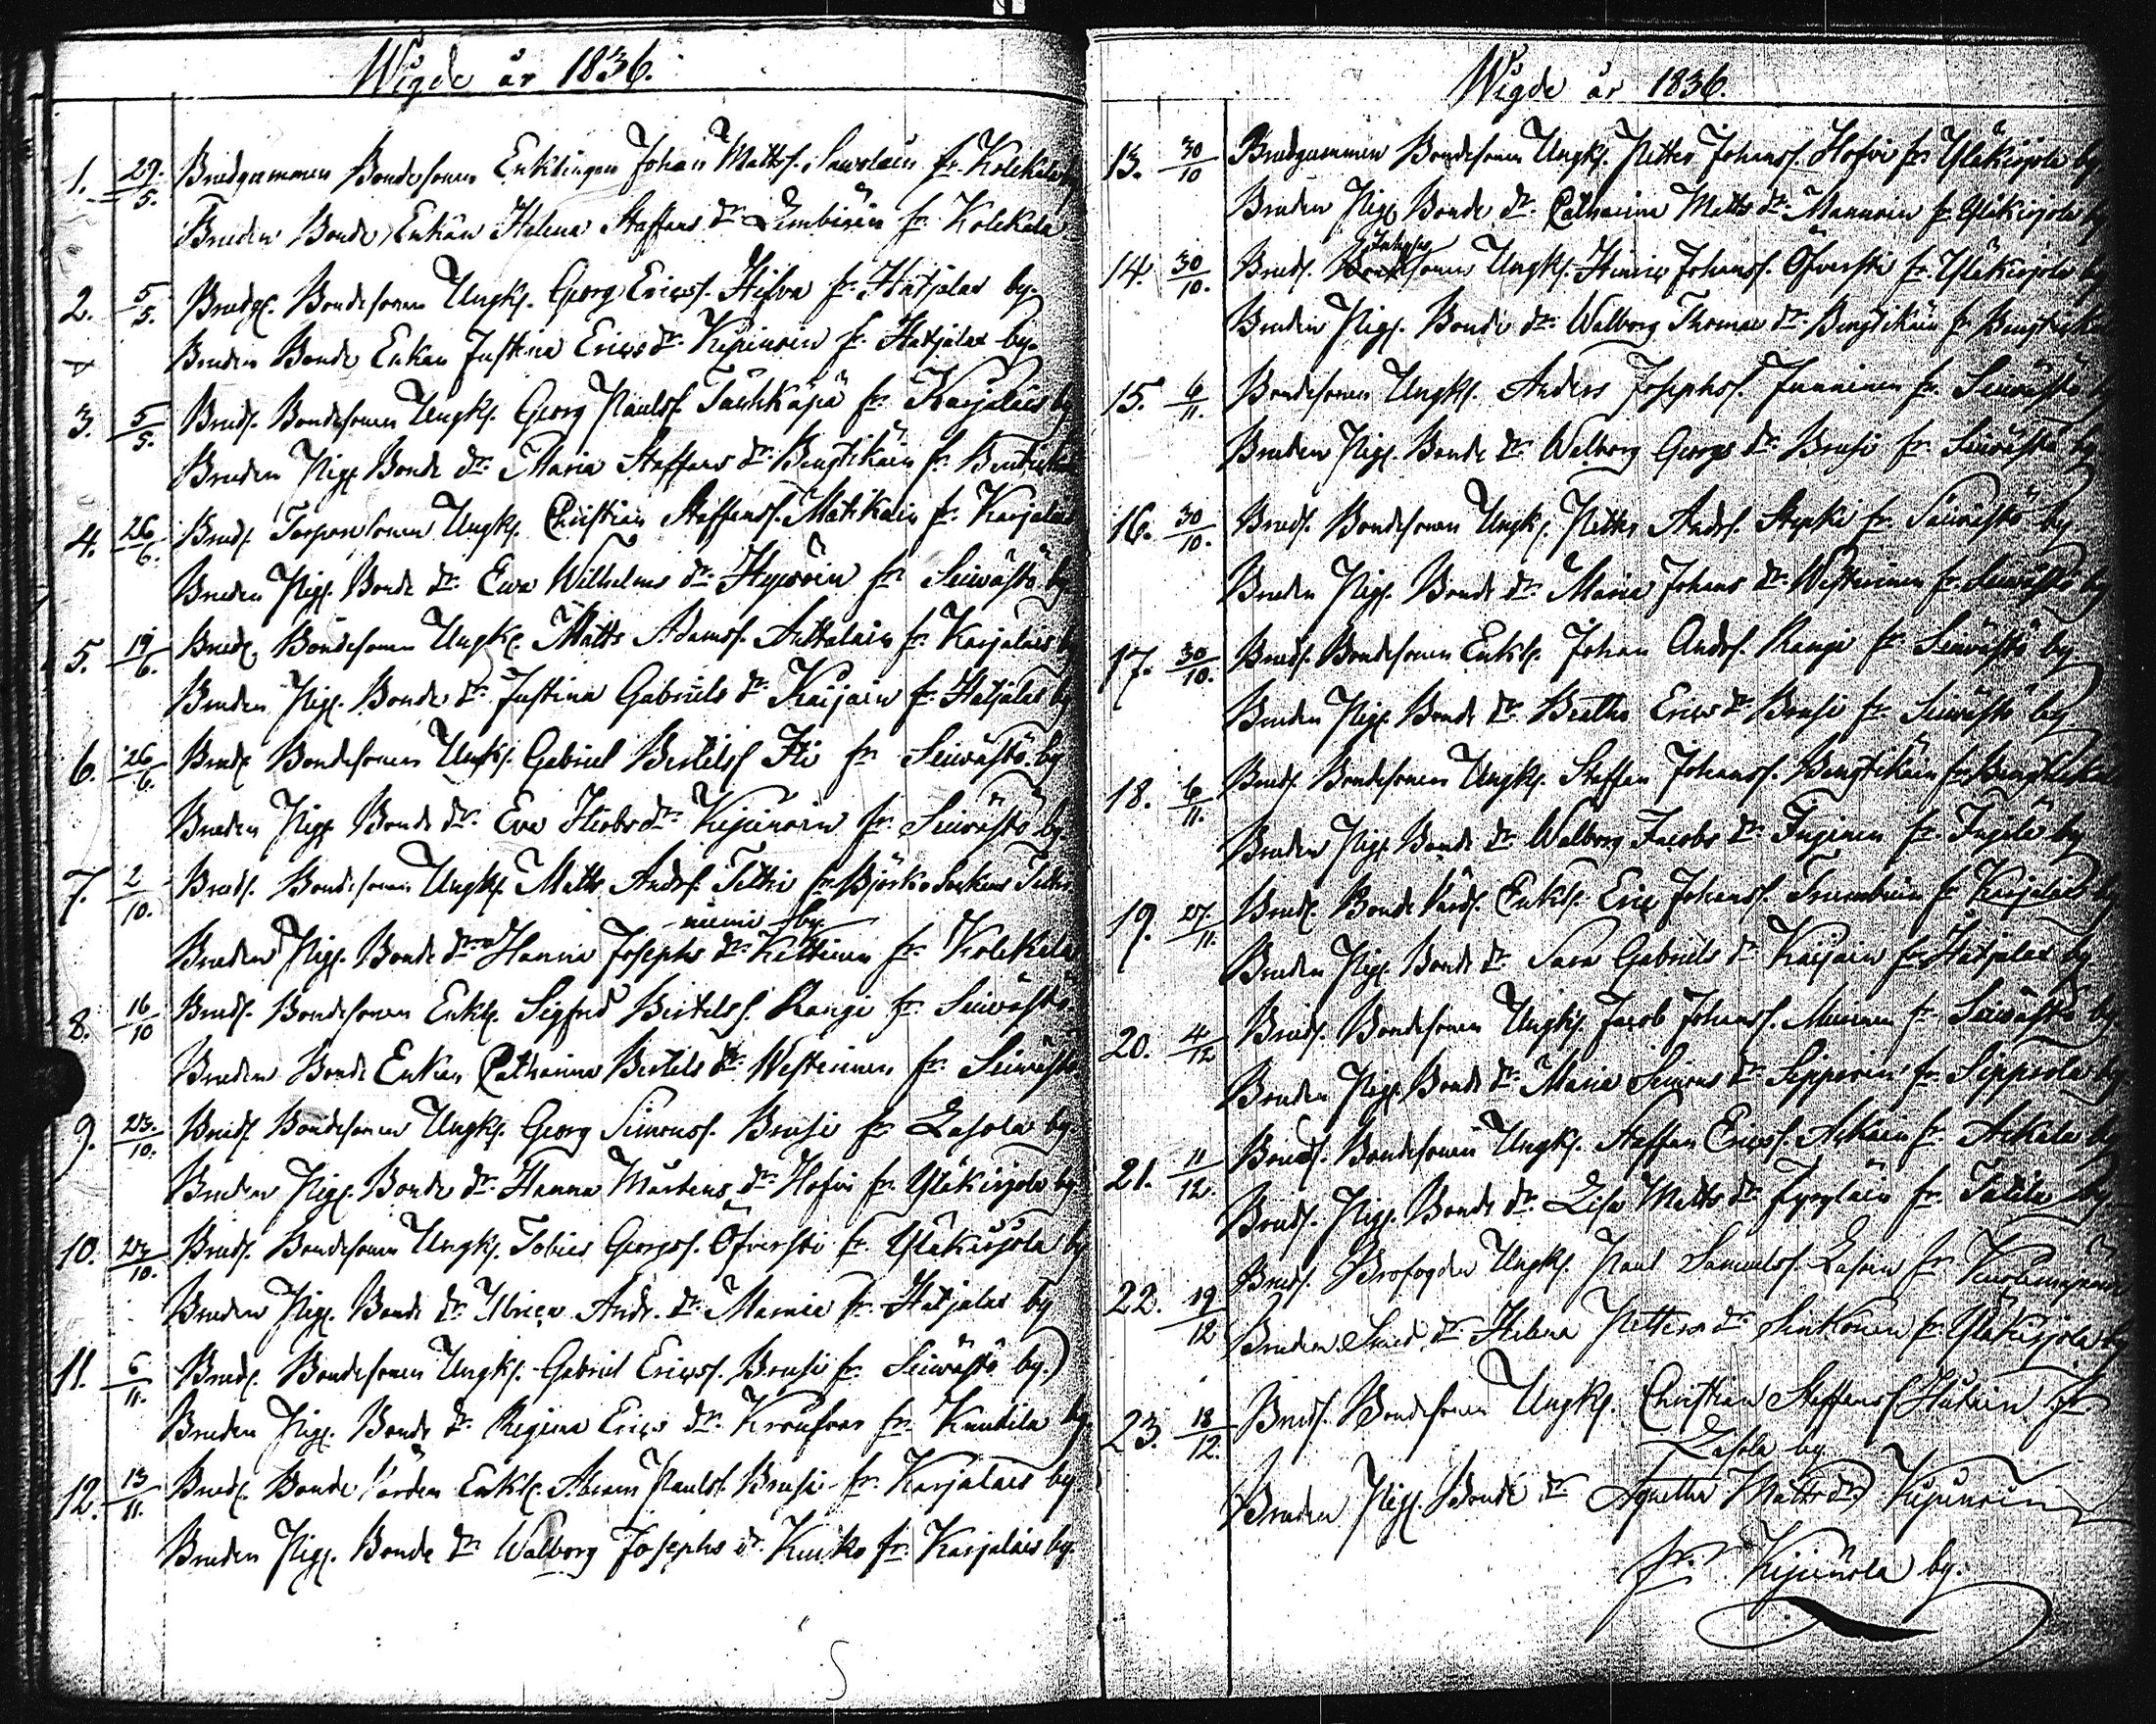 Wigde år 1836.
1. 29/5. Brudgummen Bondesonen Enklingen Johan Mattss. Sawolain fr. Kolekala by
Bruden Bonde Enkan Helena Staffans dr. Lembinen fr. Kolekala
2. 5/5. Brudg. Bondesonen Ungk. Georg Ericss. Hifva fr. Hatjalax by.
Bruden Bonde Enkan Justina Erics dr. Kipinoin fr. Hatjalax by.
3. 5/5. Brudg. Bondesonen Ungk. Georg Paulss. Täuhkäpä fr. Karjalais by
Bruden Pig. Bonde dr. Maria Staffans dr. Bengtikäin fr.
4. 26/6. Brudg. Torparesonen Ungk. Christian Staffanss. Matikain fr. Karjalais
Bruden Pig. Bonde dr. Ewa Wilhelms dr. Hyvöin fr. Seiwästö by.
5. 19/6. Brudg. Bondesonen Ungk. Matts Adamss. Anttalain fr. Karjalais by
Bruden Pig. Bonde dr. Justina Gabriels dr. Kaijain fr. Hatjalax by
6. 26/6. Brudg. Bondesonen Ungk. Gabriel Bertelss. Iti fr. Seiwästö by
Bruden Pig. Bonde dr. Eva Hiobs dr. Kijunoin fr. Seiwästö by.
7. 2/10. Brudg. Bondesonen Ungk. Matts Andrs. Teltti fr. Björkö Sockens Teltti-
niemi by.
Bruden Pig. Bonde dr. Hanna Josephs dr. Kettinen fr. Kolekela
8. 16/10 Brudg. Bondesonen Enkl. Sigfred Bertelss. Rangi fr. Seiwästö
Bruden Bonde Enkan Catharina Bertels dr. Westerinen fr. Seiwästö
9. 23./10. Brudg. Bondesonen Ungk. Georg Simonss. Brusi fr. Lasola by
Bruden Pig. Bonde dr. Hanna Mårtens dr. Hofvi fr. Yläkirjola by
10. 23/10. Brudg. Bondesonen Ungk. Tobias Georgss. Öfversti fr. Yläkirjola by
Bruden Pig. Bonde dr. Ulrica Andr. dr. fr. Hatjalax by
11. 6/11. Brudg. Bondesonen Ungk. Gabriel Ericss. Brusi fr. Seiwästö by.
Bruden Pig. Bonde dr. Regina Erics dr. fr. Kuutila by.
12. 13/11. Brudg. Bonde Enkl. Abram Paulss. Brusi fr. Karjalais by
Bruden Pig. Bonde dr. Walborg Josephs dr. Kuko fr. Karjalais by.
Wigde år 1836.
13. 30/10 Brudgummen Bondesonen Ungk. Petter Johanss. Hofvi fr. Yläkirjola by
Bruden Pig. Bonde dr. Catharina Matts dr. Mannoin fr. Yläkirjola by
14. 30/10. Brudg. sonen Ungk. Henric Johanss. Öfversti fr. Yläkirjola by
Bruden Pig. Bonde dr. Walborg Thomas dr. Bengtikäin fr.
15. 6/11. Bondesonen Ungk. Anders Josephss. Junninen fr. Seiwästö
Bruden Pig. Bonde dr. Walborg Georgs dr. Brusi fr. Seiwästö by
16. 30/10. Brudg. Bondesonen Ungk. Petter Andrs. Seppi fr. Seiwästö by
Bruden Pig. Bonde dr. Maria Johans dr. Westerinen fr. Seiwästö by
17. 30/10. Brudg. Bondesonen Enkl. Johan Andrs. Rangi fr. Seiwästö by
Bruden Pig. Bonde dr. Beatha Erics dr. Brusi fr. Seiwästö by
18. 6/11. Brudg. Bondesonen Ungk. Staffan Johanss. Bengtikäin fr.
Bruden Pig. Bonde dr. Walborg Jacobs dr. Inginen fr. Ingilä by
19. 27./11. Brudg. Bonde Enkl. Eric Johanss. fr. Karjalais by
Bruden Pig. Bonde dr. Sara Gabriels dr. Kaijain fr. Hatjalax by
20. 4/12 Brudg. Bondesonen Ungk. Jacob Johanss. Muinen fr. Seiwästö by.
Bruden Pig. Bonde dr. Maria Simons dr. Sipponin fr. Sippola by
21. 11/12. Brudg. Bondesonen Ungk. Staffan Ericss. Arkäin fr. Arkela by
Brudg. Pig. Bonde dr. Lisa Matts dr. fr. Tatila by
22. 19/12 Brudg. Brofogden Ungk. Paul Samuelss. Lasoin fr.
Bruden Smed dr. Helena Petters dr. Sinkonen fr. Yläkirjola by
23. 18/12. Brudg. Bondesonen Ungk. Christian Staffans. fr.
Lasola by.
Bruden Pig. Bonde dr. Agnetha Matts dr. Kijunoin
fr. Kijunola by.